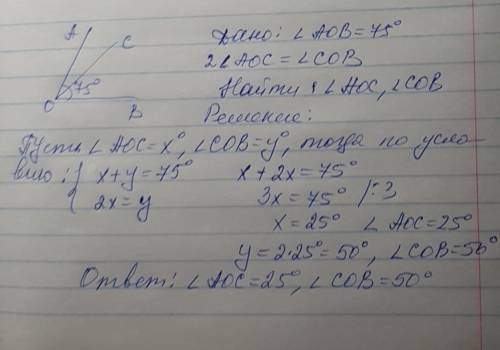 A
C
75°
O
B
Дано: ∠AOB=75°
2∠AOC=∠COB
Найти: ∠AOC, ∠COB
Решение:
Пусть ∠AOC=x°, ∠COB=y°, тогда по усло
вию:
{ x+y=75°
2x=y
x+2x=75°
3x=75° |:3
x=25° ∠AOC=25°
y=2·25°=50°, ∠COB=50°
Ответ: ∠AOC=25°, ∠COB=50°